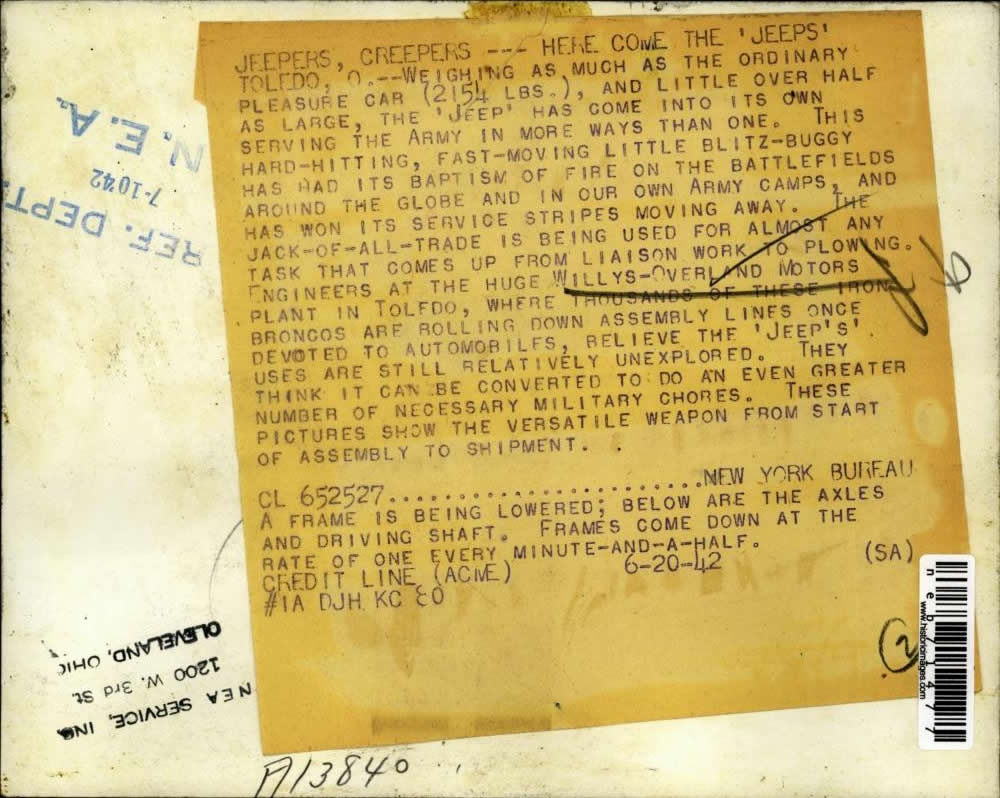 JEEPERS, CREEPERS --- HERE COME THE 'JEEPS'
TOLEDO, O.--WEIGHING AS MUCH AS THE ORDINARY
PLEASURE CAR (2154 LBS.), AND LITTLE OVER HALF
AS LARGE, THE 'JEEP' HAS COME INTO ITS OWN
SERVING THE ARMY IN MORE WAYS THAN ONE. THIS
HARD-HITTING, FAST-MOVING LITTLE BLITZ-BUGGY
HAS HAD ITS BAPTISM OF FIRE ON THE BATTLEFIELDS
AROUND THE GLOBE AND IN OUR OWN ARMY CAMPS, AND
HAS WON ITS SERVICE STRIPES MOVING AWAY. THE
JACK-OF-ALL-TRADE IS BEING USED FOR ALMOST ANY
TASK THAT COMES UP FROM LIAISON WORK TO PLOWING.
ENGINEERS AT THE HUGE WILLYS-OVERLAND MOTORS
PLANT IN TOLEDO, WHERE THOUSANDS OF THESE IRON
BRONCOS ARE ROLLING DOWN ASSEMBLY LINES ONCE
DEVOTED TO AUTOMOBILES, BELIEVE THE 'JEEP'S'
USES ARE STILL RELATIVELY UNEXPLORED. THEY
THINK IT CAN BE CONVERTED TO DO AN EVEN GREATER
NUMBER OF NECESSARY MILITARY CHORES. THESE
PICTURES SHOW THE VERSATILE WEAPON FROM START
OF ASSEMBLY TO SHIPMENT.
CL 652527.......................NEW YORK BUREAU
A FRAME IS BEING LOWERED; BELOW ARE THE AXLES
AND DRIVING SHAFT. FRAMES COME DOWN AT THE
RATE OF ONE EVERY MINUTE-AND-A-HALF.
CREDIT LINE (ACME) 6-20-42 (SA)
#1A DJH KC EO
N.E.A.
7-1042
REF. DEPT.
NEA SERVICE, INC.
1200 W. 3rd St.
CLEVELAND, OHIO
2
A13840
neb71477
www.historicimages.com